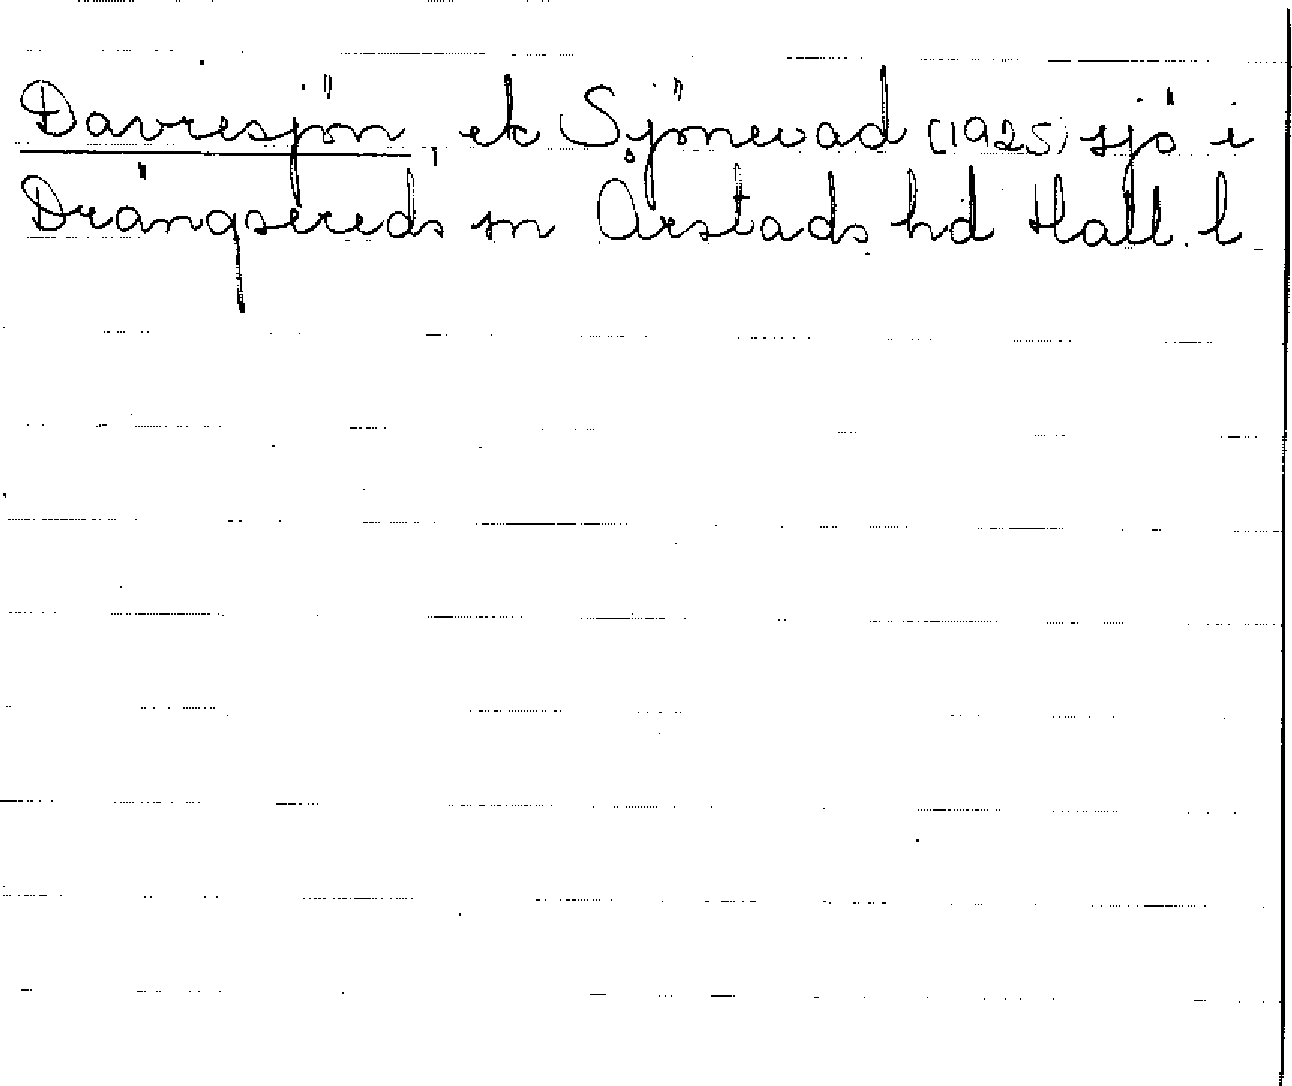 Davresjön, ek Sjönevad (1925) sjö i
Drängsereds sn Årstads hd Hall. l